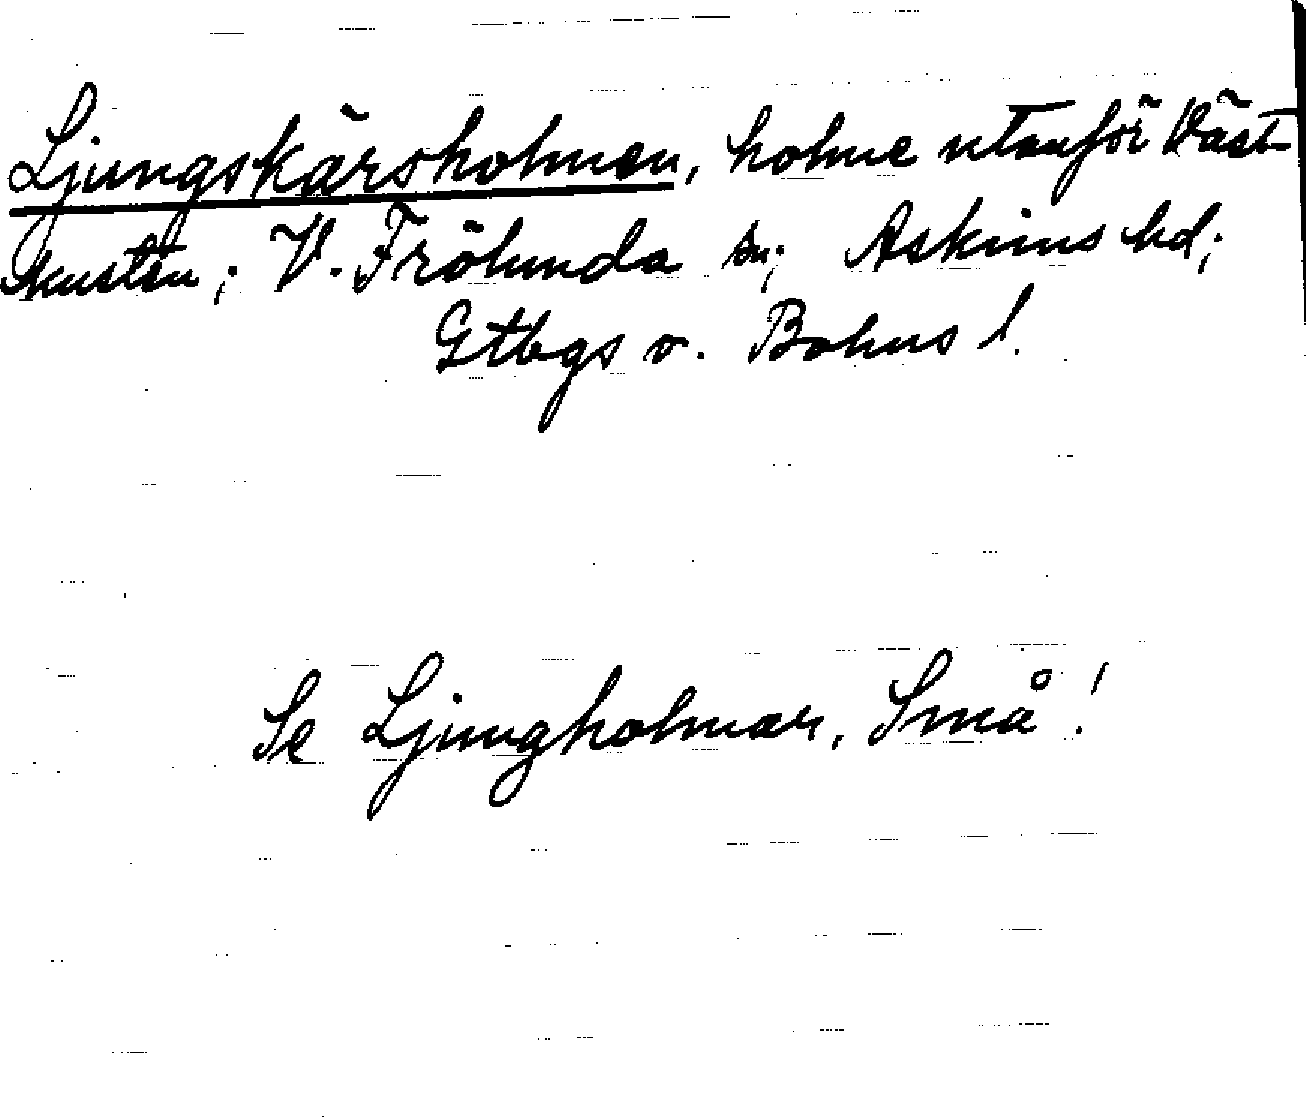 Ljungskärsholmen, holme utanför Väst-
kusten; V. Frölunda sn; Askims hd;
Gtbgs o. Bohus l.
Se Ljungholmar, Små!